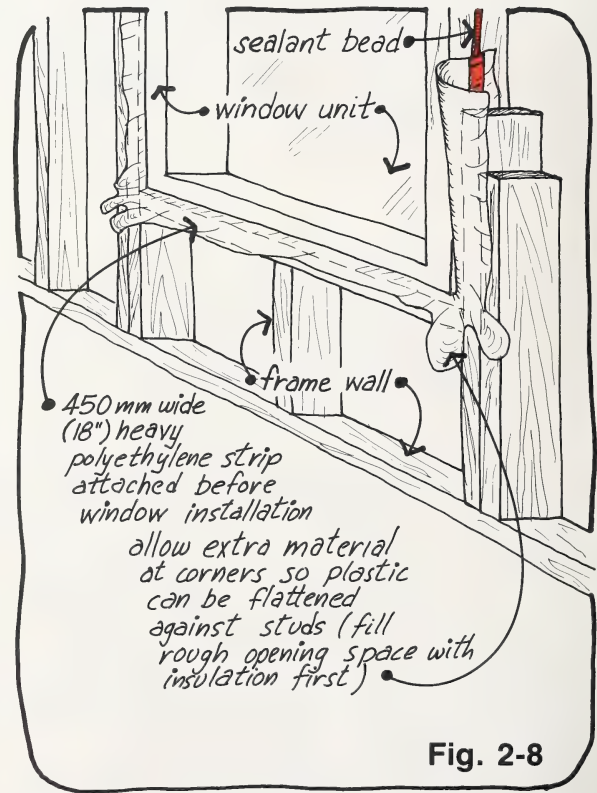 sealant bead
window unit
frame wall
450 mm wide
(18") heavy
polyethylene strip
attached before
window installation
allow extra material
at corners so plastic
can be flattened
against studs (fill
rough opening space with
insulation first)
Fig. 2-8